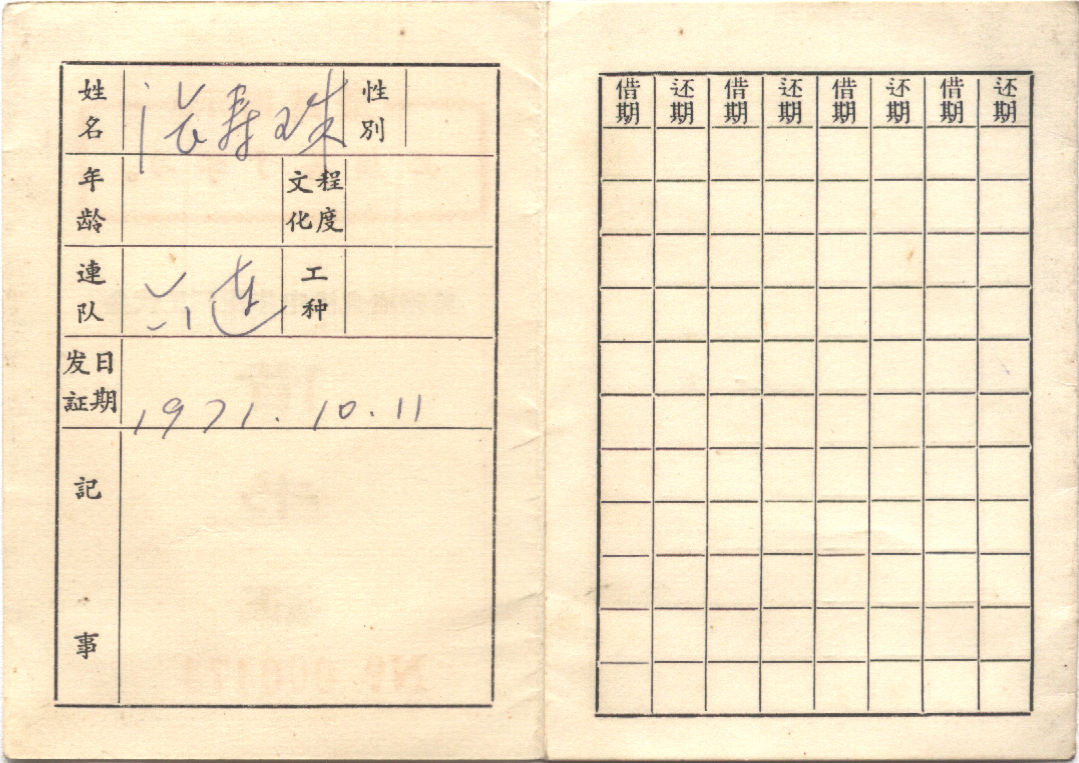 姓名 寿珠 性别
年龄 文化程度
連队 六连 工种
发証日期 1971.10.11
記事
借期 还期 借期 还期 借期 还期 借期 还期